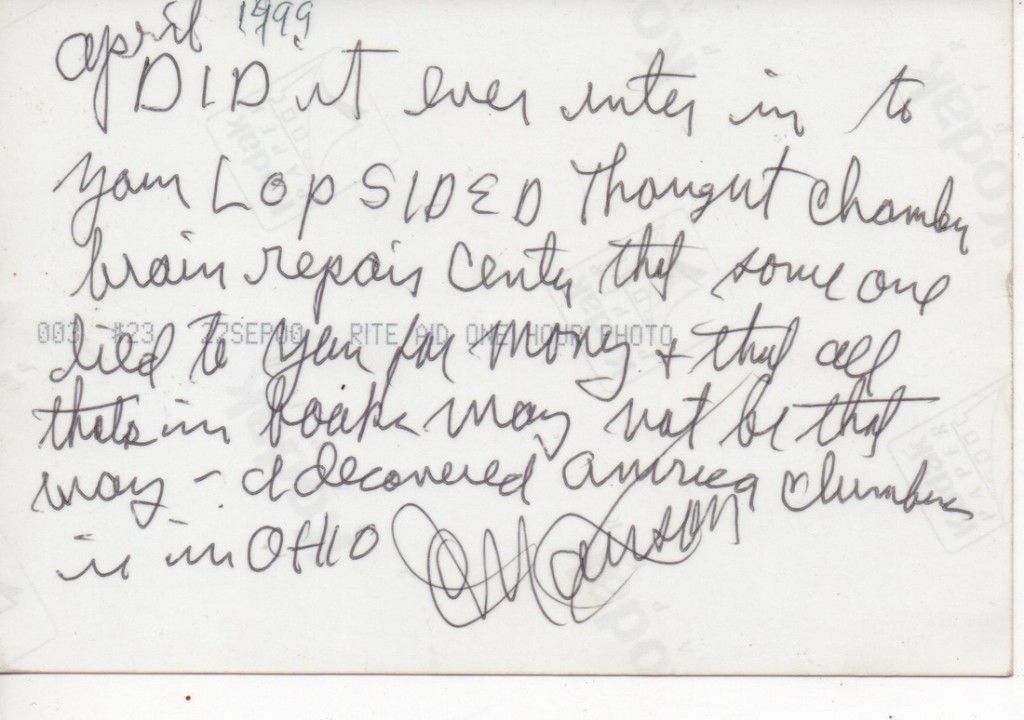 april 1999
DID it ever inter in to
your LOPSIDED thought chamber
brain repair center that some one
003 #23 27SEP00 RITE AID ONE HOUR PHOTO
lied to you for money + that all
thats in books may not be that
way - I decovered America clumbus
is in OHIO C Manson